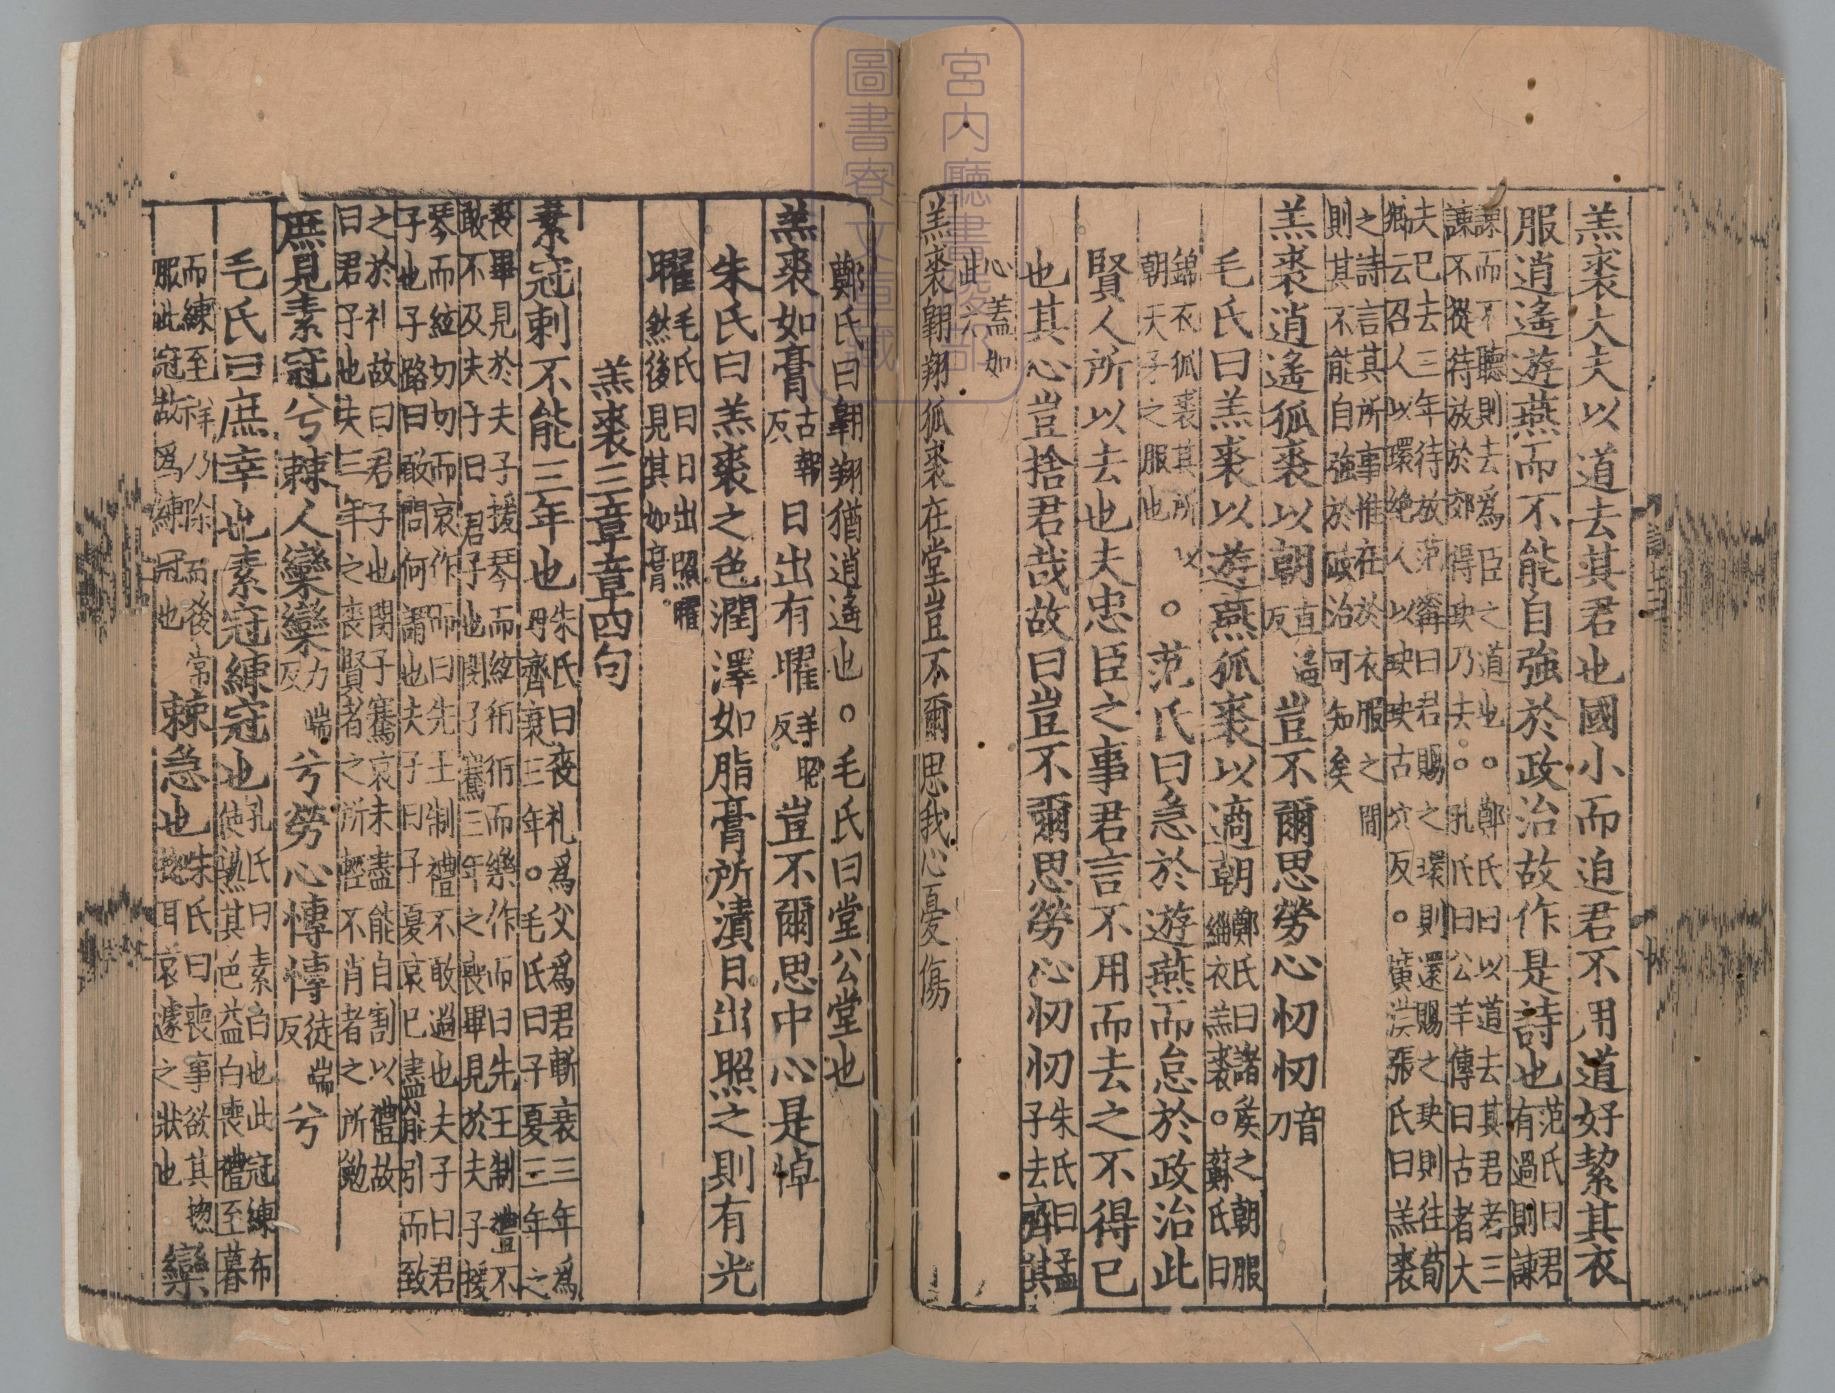 羔裘大夫以道去其君也國小而迫君不用道好絜其衣
服逍遙遊燕而不能自強於政治故作是詩也范氏曰君有過則諫
諫而不聽則去爲臣之道也。鄭氏曰以道去其君者三
諫不從待放於郊得玦乃去。孔氏曰公羊傳曰古者大
夫已去三年待放范甯曰君賜之環則還賜之玦則往荀
卿云召人以環絶人以玦玦古穴反。廣漢張氏曰羔裘
之詩言其所事惟在於衣服之間
則其不能自強於政治可知矣
羔裘逍遙狐裘以朝直遙反豈不爾思勞心忉忉音刀
毛氏曰羔裘以遊燕狐裘以適朝鄭氏曰諸矦之朝服緇衣羔裘。蘇氏曰
錦衣狐裘其所以
朝天子之服也。范氏曰急於遊燕而怠於政治此
賢人所以去也夫忠臣之事君言不用而去之不得已
也其心豈捨君哉故曰豈不爾思勞心忉忉朱氏曰孟子去齊其
心蓋如
此
羔裘翺翔狐裘在堂豈不爾思我心憂傷
鄭氏曰翺翔猶逍遙也。毛氏曰堂公堂也
羔裘如膏古報反日出有曜羊照反豈不爾思中心是悼
朱氏曰羔裘之色潤澤如脂膏所漬日出照之則有光
曜毛氏曰日出照曜然後見其如膏
羔裘三章章四句
素冠刺不能三年也朱氏曰喪礼爲父爲君斬衰三年爲母齊衰三年。毛氏曰子夏三年之
喪畢見於夫子援琴而絃衎衎而樂作而曰先王制禮不
敢不及夫子曰君子也閔子騫三年之喪畢見於夫子援
琴而絃切切而哀作而曰先王制禮不敢過也夫子曰君
子也子路曰敢問何謂也夫子曰子夏哀已盡能引而致
之於礼故曰君子也閔子騫哀未盡能自割以禮故
曰君子也夫三年之喪賢者之所輕不肖者之所勉
庶見素冠兮棘人欒欒力端反兮勞心慱慱徒端反兮
毛氏曰庶幸也素冠練冠也孔氏曰素白也此冠練布使熟其色益白喪禮至朞
而練至祥乃除而後常
服此冠故爲練冠也棘急也朱氏曰喪事欲其揔揔耳哀遽之狀也欒